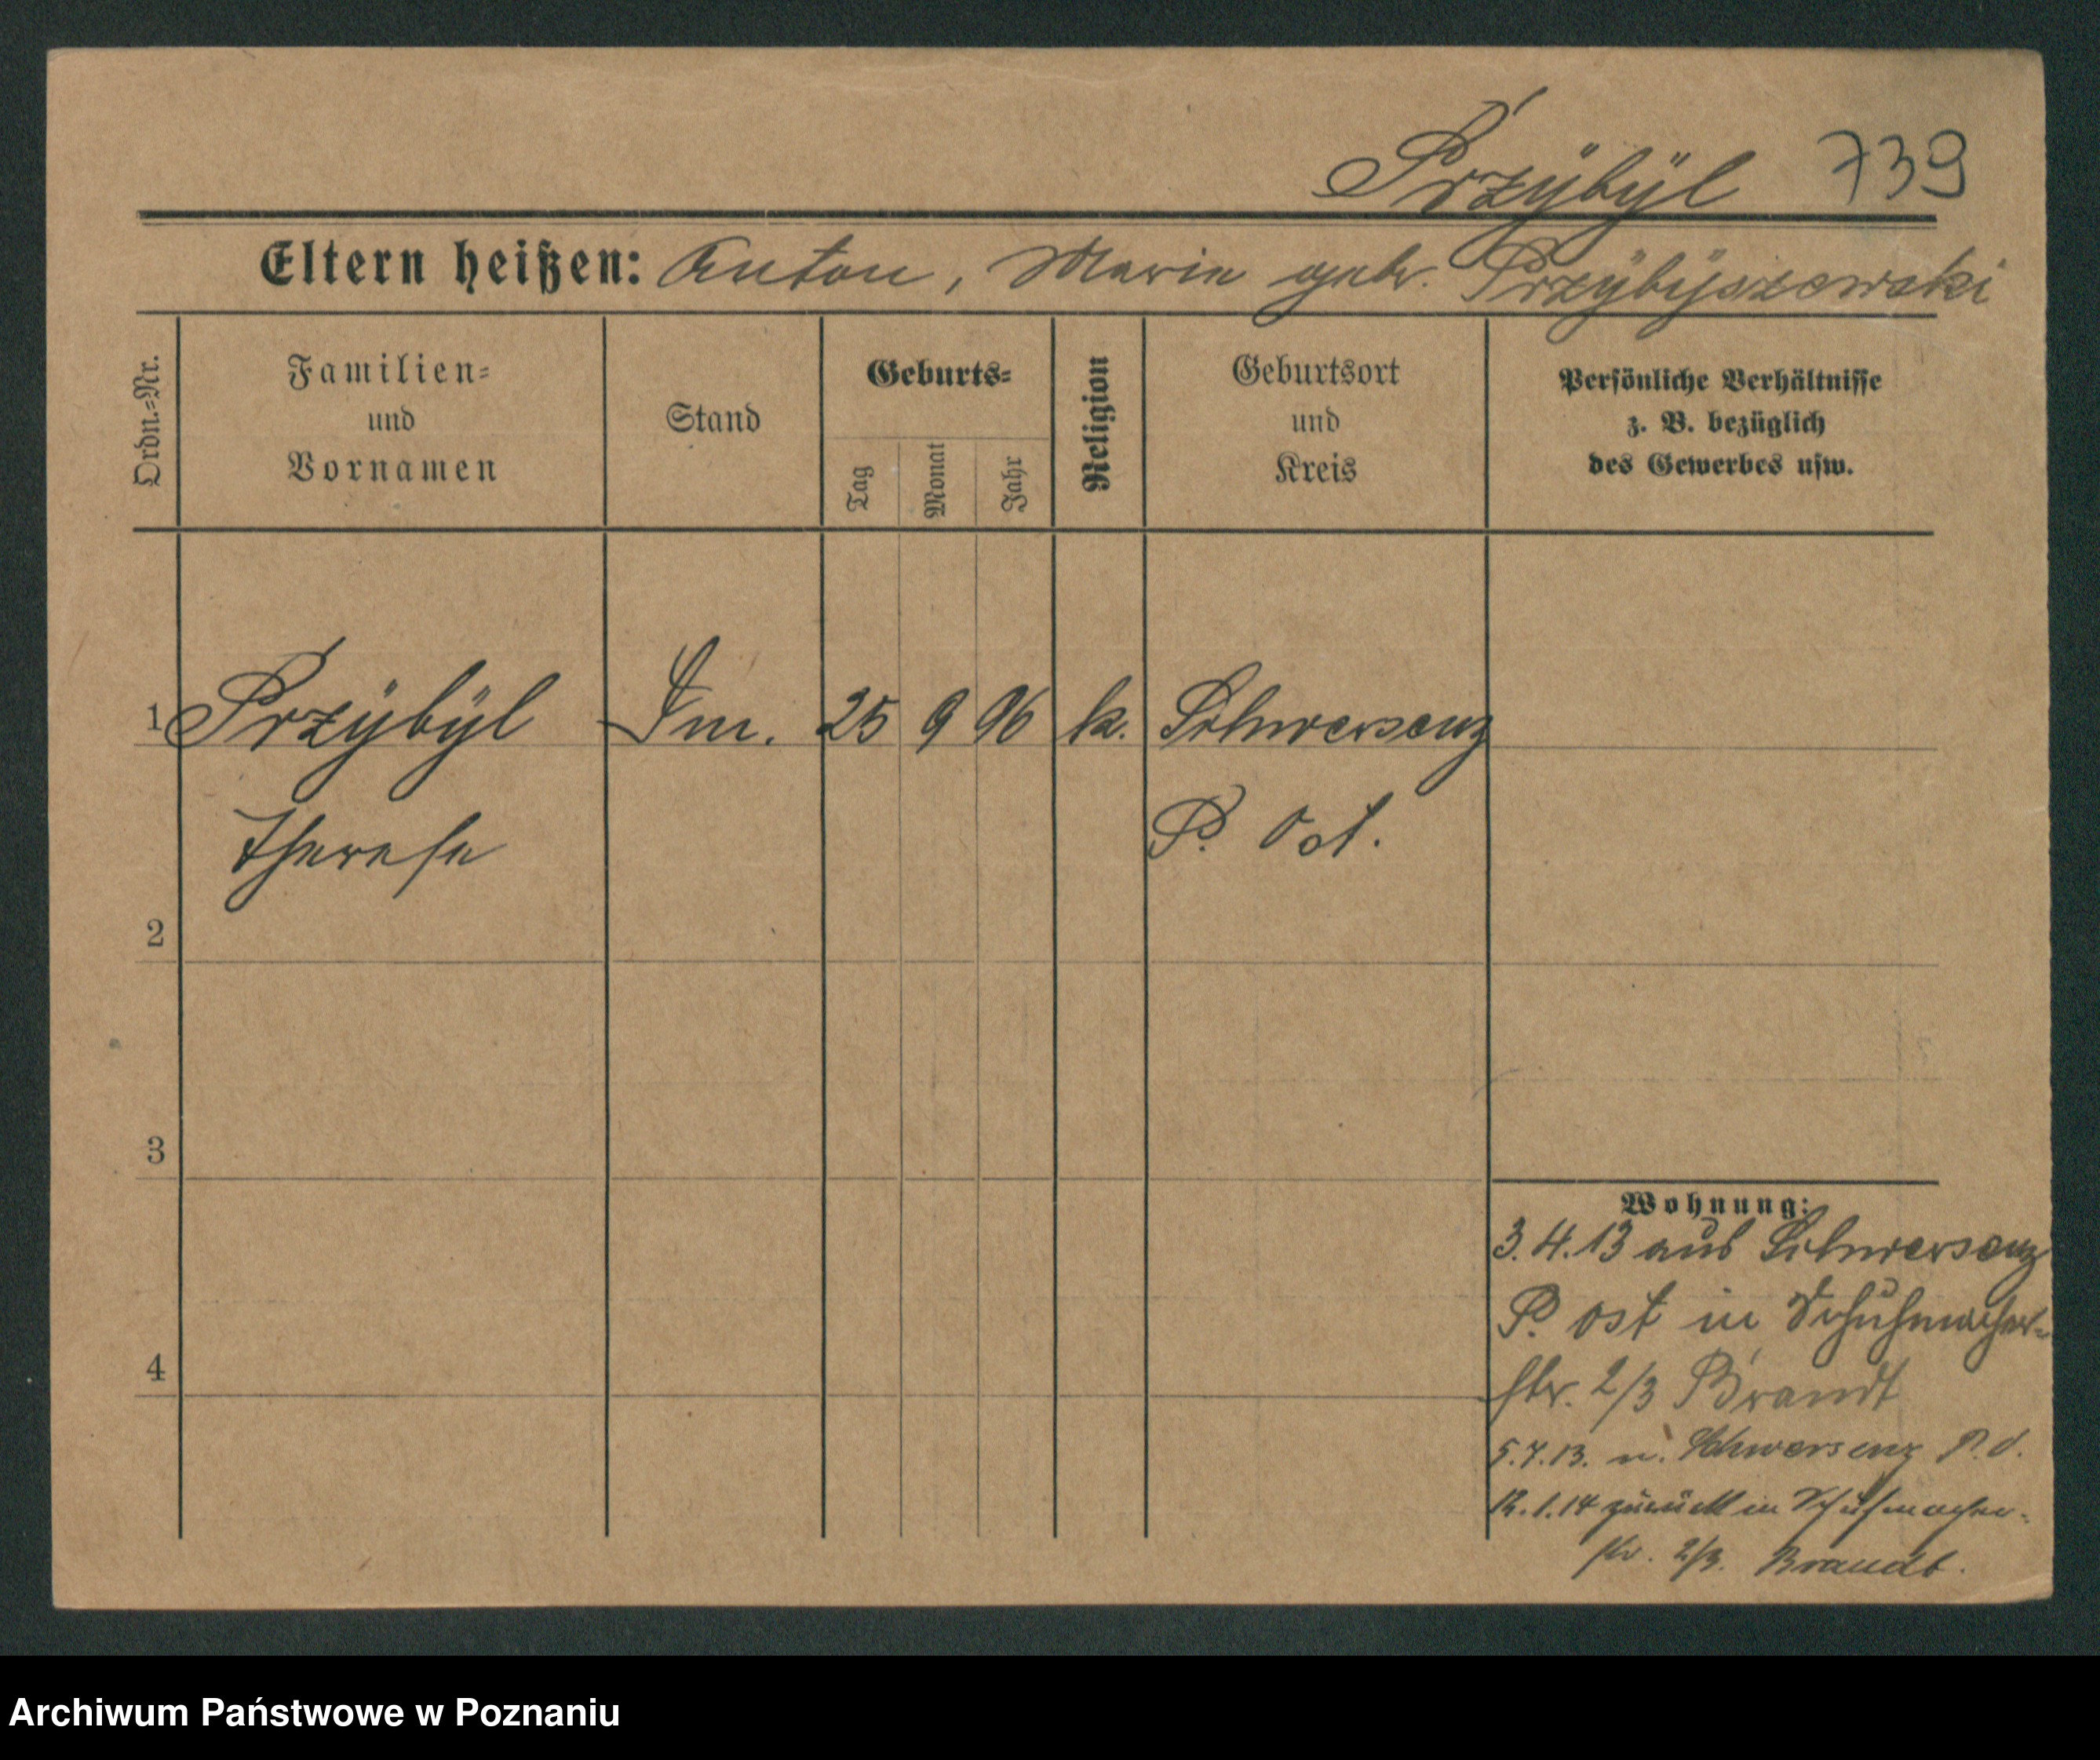 Przÿbÿl 739
Eltern heißen: Anton, Marie gebr. Przÿbÿszewski
Ordn.-Nr.
Familien- und Vornamen
Stand
Geburts-
Tag
Monat
Jahr
Religion
Geburtsort und Kreis
Persönliche Verhältnisse
z. B. bezüglich
des Gewerbes usw.
1 Przÿbÿl 25 9 96 k. Schwersenz
Therese P. Ost.
2
3
4
Wohnung:
3.4.13 aus Schwersenz
P. Ost in Schuhmacher-
str. 2/3 Brandt
5.7.13. n. Schwersenz P. O.
12.1.14 zurück in Schuhmacher-
str. 2/3. Brandt.
Archiwum Państwowe w Poznaniu